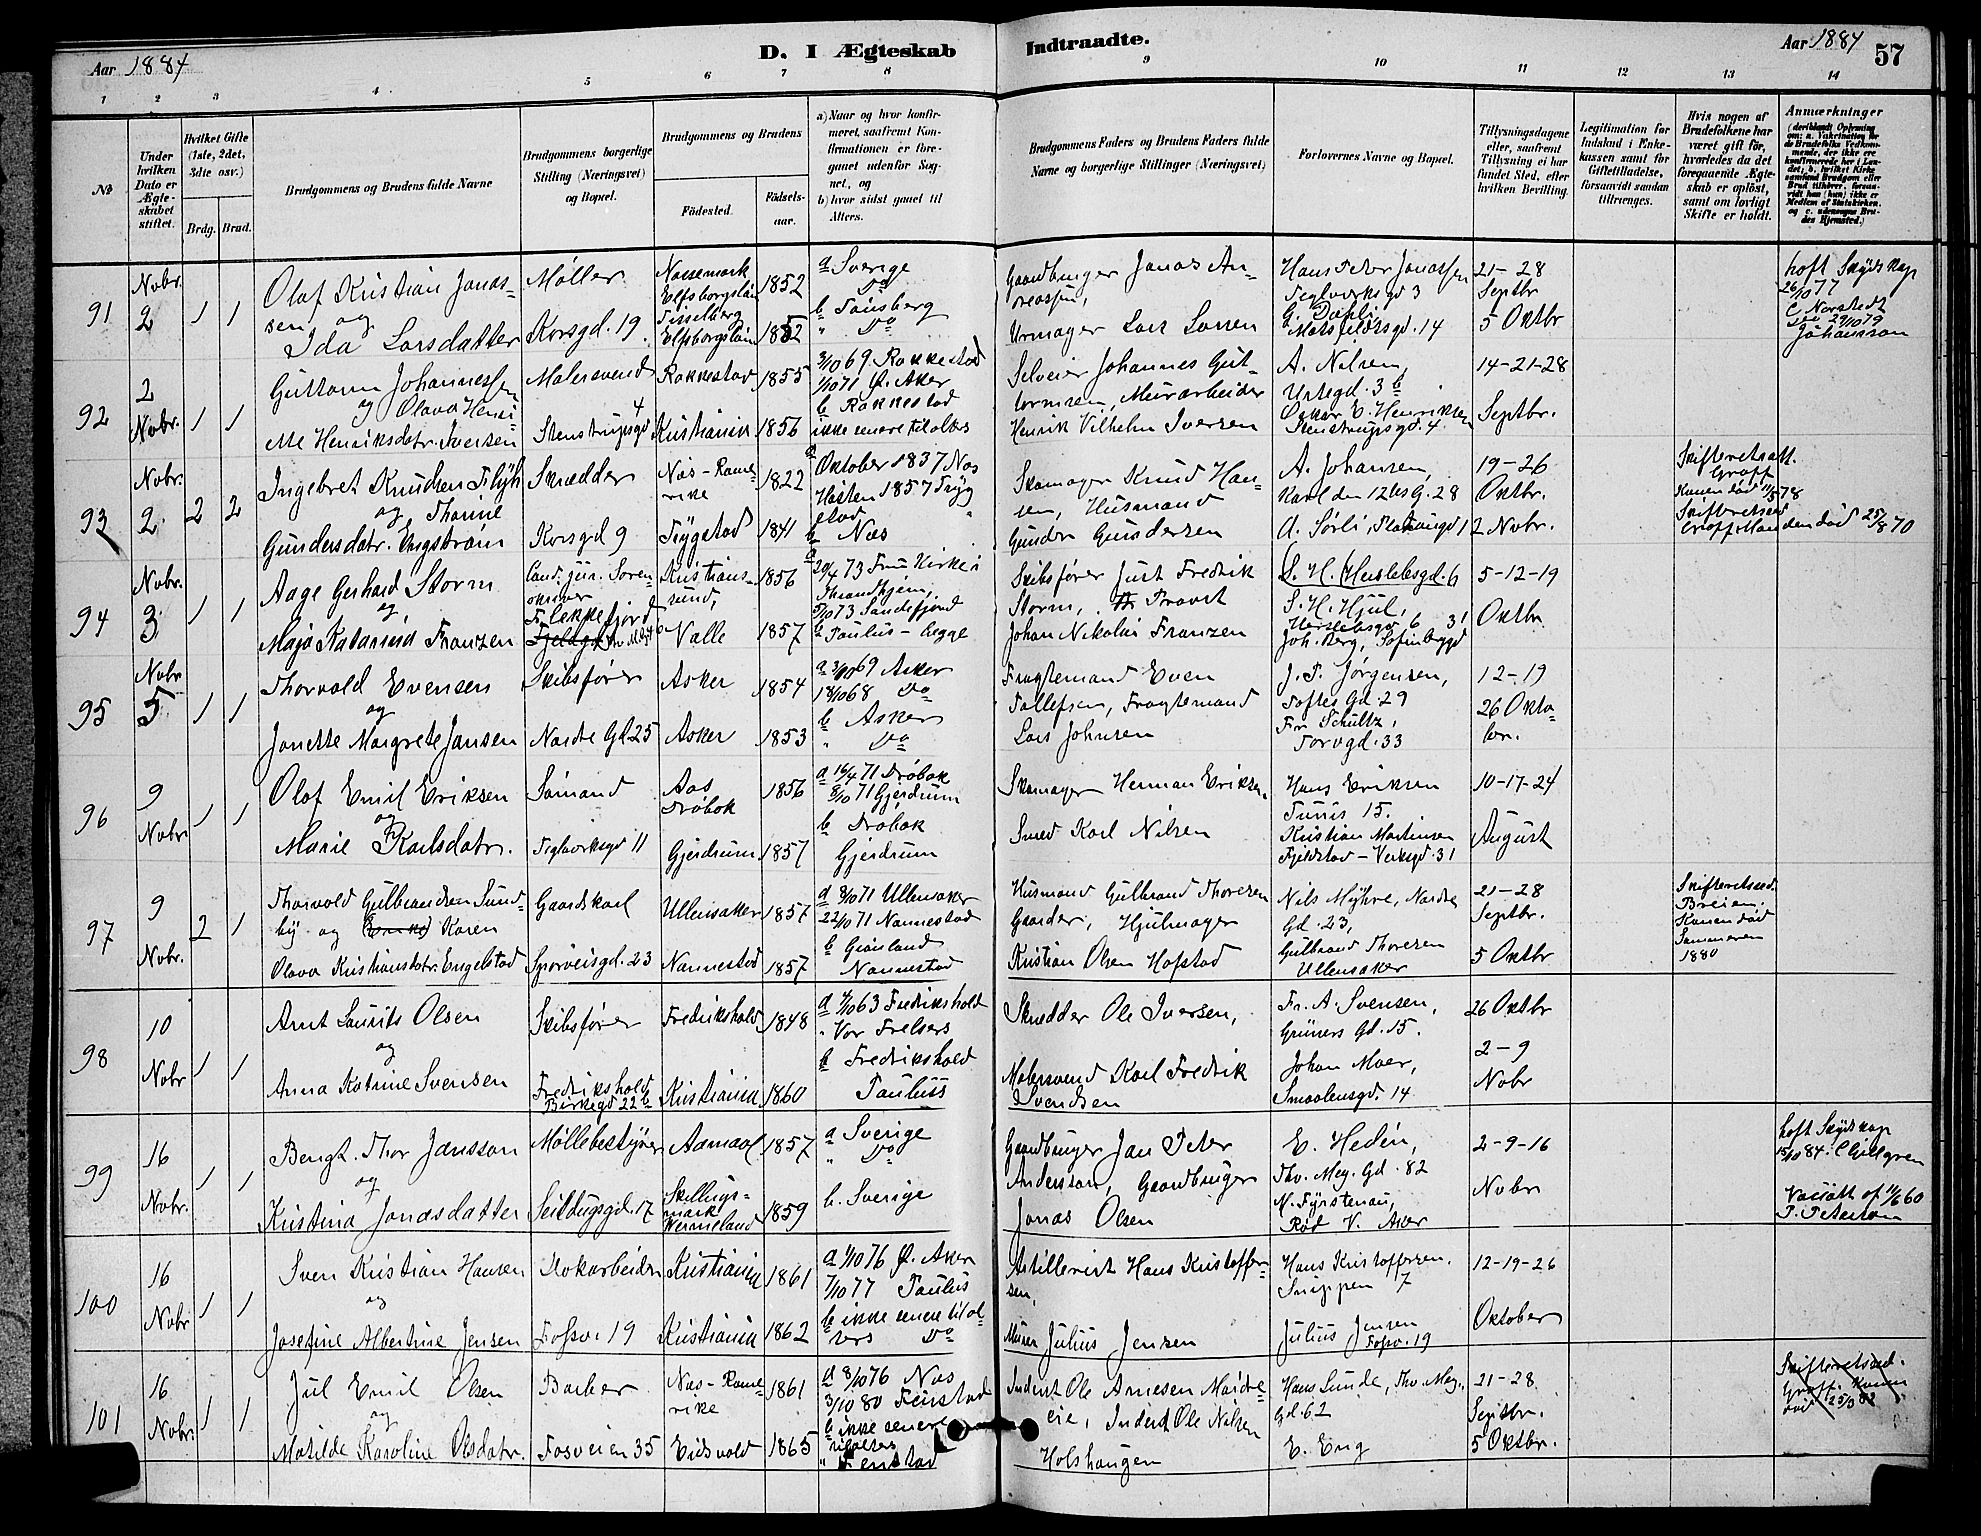 Aar 1884
D. I Ægteskab
Indtraadte.
Aar 1884
57
1 2 3 4 5 6 7 8 9 10 11 12 13 14
No
Under hvilken Dato er Ægteskabet stiftet.
Hvilket Gifte (1ste, 2det, 3die osv.)
Brdg. Brud.
Brudgommens og Brudens fulde Navne
Brudgommens borgerlige Stilling (Næringsvei) og Bopæl.
Brudgommens og Brudens
Fødested.
Fødselsaar.
a) Naar og hvor konfirmeret, saafremt Konfirmationen er foregaaet udenfor Sognet, og
b) hvor sidst gaaet til Alters.
Brudgommens Faders og Brudens Faders fulde Navne og borgerlige Stillinger (Næringsvei)
Forlovernes Navne og Bopæl.
Tillysningsdagene eller, saafremt Tillysning ei har fundet Sted, efter hvilken Bevilling.
Legitimation for Indskud i Enkekassen samt for Giftetilladelse, forsaavidt saadan tiltrænges.
Hvis nogen af Brudefolkene har været gift før, hvorledes da det foregaaende Ægteskab er opløst, samt om lovligt Skifte er holdt.
Anmærkninger
91
2 Nobr.
1 1
Olaf Kristian Jonassen og
Ida Larsdatter
Møller
Korsgd. 19
Elfsborgslän 1852
Elfsborgslän 1852
a Sverige
Do
b Tönsberg
" Do
Gaardbruger Jonas Andreassen,
Urmager Lars Larsen
Hans Peter Jonassen
Teglverksgd 3
14
21-28 Septbr
5 Oktbr
haft Skydskap
26/10 77
C Norstedt
Do 29/10 79
Johansson
92
2 Nobr.
1 1
Guttorm Johannessen
og Olava Henriette Henriksdatr. Iversen
Malersvend
Stenstrupsgd 4
Rakkestad 1855
Kristiania 1856
3/10 69 Rakkestad
1/10 71 Ø. Aker
b Rakkestad
ikke senere til alters
Selveier Johannes Guttormsen, Murarbeider
Henrik Vilhelm Iversen
A. Nilsen,
Urtegd. 3 b
Oskar E. Henriksen
Stenstrupsgd. 4
14-21-28
Septbr.
93
Nobr. 2.
2 2
Ingebret Knudsen Flyh
og Thorine
Gundersdatr. Engstrøm
Skrædder
Korsgd 9
Næs-Romerike 1822
Trygstad 1841
a Oktober 1837 Næs
Høsten 1857 Trygstad
b Næs
Skomager Knud Hansen, Husmand
Gunder Gundersen
A. Johansen,
Karl den 12tes G. 28
A. Sørli,
19-26
Oktbr.
2 Nobr.
Skifteretsatt.
Groff
Konen død 11/5 78
Skifteretsed
Groff. Manden død 25/8 70
94
Nobr. 3.
1 1
Aage Gerhard Storm
og
Maja Katarina Franzen
Cand. jur. Sorenskriver
Flekkefjord
Kristianssund, 1856
Valle 1857
a 20/4 73 Frue Kirke i
Throndhjem,
5/10 73 Sandefjord
b Paulus - begge
Skibsfører Just Fredrik
Storm, Provst
Johan Nikolai Franzen
S. H. Hjul,
Herslebsgd 6
Joh. Berg,
5-12-19
Oktbr
95
Nobr 5
1 1
Thorvald Evensen
og
Janette Margrete Jansen
Skibsfører
Nordre Gd 25
Asker 1854
Asker 1853
a 3/10 69 Asker
18/10 68 Do
b Asker
" Do
Fragtemand Even
Tollefsen, Fragtemand
Lars Johnsen
J. P. Jørgensen,
Toftes Gd. 29
Fr. Schultz,
Torvgd. 33
12-19
26 Oktobr.
96
9 Nobr
1 1
Olaf Emil Eriksen
og
Marie Karlsdatr.
Sømand
Teglverksgd 11
Aas
Drøbak 1856
Gjerdrum 1857
a 16/4 71 Drøbak
8/10 71 Gjerdrum
b Drøbak
Gjerdrum
Skomager Herman Eriksen.
Smed Karl Nilsen
Hans Eriksen
Tunis 15.
Kristian Martinsen
Fjeldstad - Verksgd. 31
10-17-24
August
97
9 Nobr.
2 1
Thorvald Gulbrandsen Sundby og Karen
Olava Kristiansdatr. Engelstad
Gaardskarl
Sporveisgd. 23
Ullensaker 1857
Nannestad 1857
a 8/10 71 Ullensaker
22/10 71 Nannestad
b Grønland
Nannestad
Husmand Gulbrand Thoresen
Gaarder, Hjulmager
Kristian Olsen Hofstad
Nils Myhre, Nordre
Gd. 23,
Gulbrand Thoresen
Ullensaker
21-28
Septbr.
5 Oktbr
Skifteretsed.
Breien.
Konen død
Sommeren
1880
98
10 Nobr
1 1
Arnt Laurits Olsen
og
Anna Katrine Svensen
Skibsfører
Fredrikshald
Birkegd 22 b
Fredrikshald 1848
Kristiania 1860
a 4/10 63 Fredrikshald
" Vor Frelsers
b Fredrikshald
Paulus
Skrædder Ole Iversen,
Malersvend Karl Fredrik
Svendsen
Fr. A. Svensen,
Grüners Gd. 15.
Johan Moer,
Smaalensgd. 14
26 Oktbr
2-9
Nobr
99
16 Nobr.
1 1
Bengt. Thor Jansson
og
Kristina Jonasdatter
Møllebestyrer
Seildugsgd. 17
Aamaal 1857
Skillingsmark
Vermeland 1859
a Sverige
" Do
b. Sverige
Gaardbruger Jan Peter
Andersson, Gaardbruger
Jonas Olsen
E. Hedén,
Thv. Mey. Gd. 82
N. Fyrstenau,
Rød V. Aker
2-9-16
Nobr
haft Skydskap
15/10 84. C Gullgren
Vacsatt af 11/6 60
P. Peterson
100
16 Nobr
1 1
Sven Kristian Hansen
og
Josefine Albertine Jensen
Dokarbeider
Fossv. 19
Kristiania 1861
Kristiania 1862
a 1/10 76 Ø. Aker
7/10 77 Paulus
b ikke senere til alters Do
Artillerist Hans Kristoffersen,
Murer Julius Jensen
Hans Kristoffersen.
Snippen 7
Julius Jensen
Fossv. 19
12-19-26
Oktober
101
16 Nobr.
1 1
Jul Emil Olsen
og
Matilde Karoline Olsdatr.
Barber
Fosveien 35
Næs-Romerike 1861
Eidsvold 1865
a 8/10 76 Næs
3/10 80 Feiestad
b ikke senere
til alters
" Fenstad
Inderst Ole Arnesen
eie, Inderst Ole Nilsen
Holshaugen
Hans Lunde, Thv. Mey.
Gd. 62
E. Eng
21-28
Septbr.
5 Oktbr.
Skifteretsed.
Groff. Konen
død 25/3 82